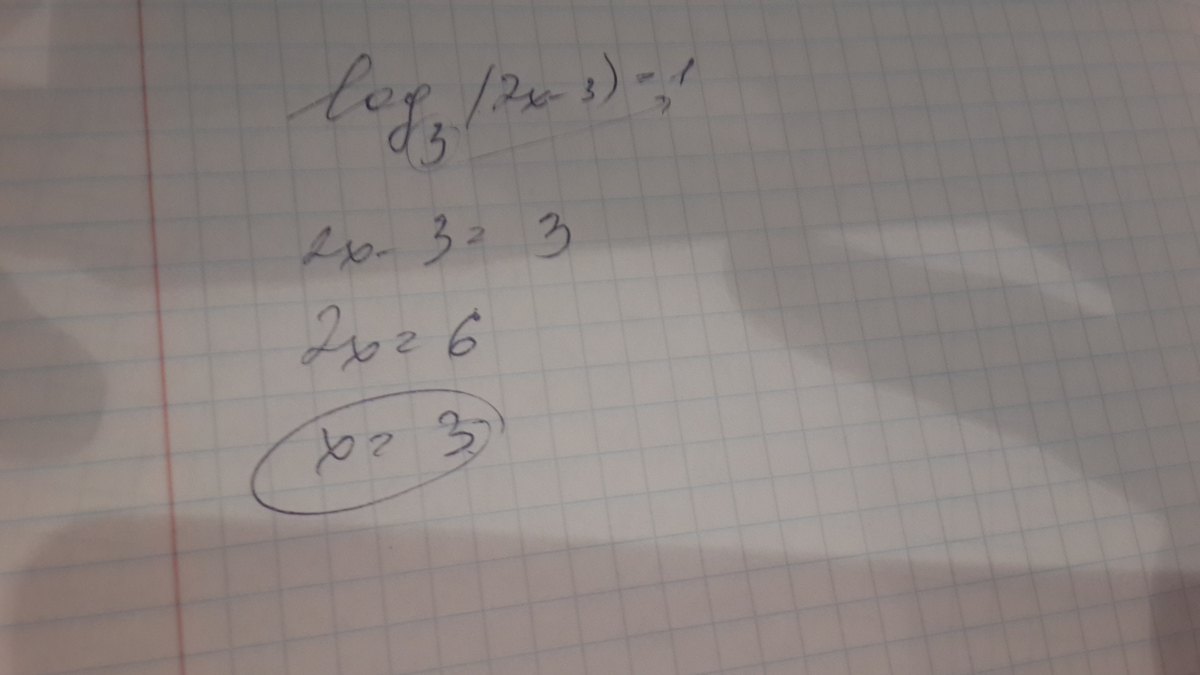 log₃(2x-3) = 1
2x - 3 = 3
2x = 6
x = 3